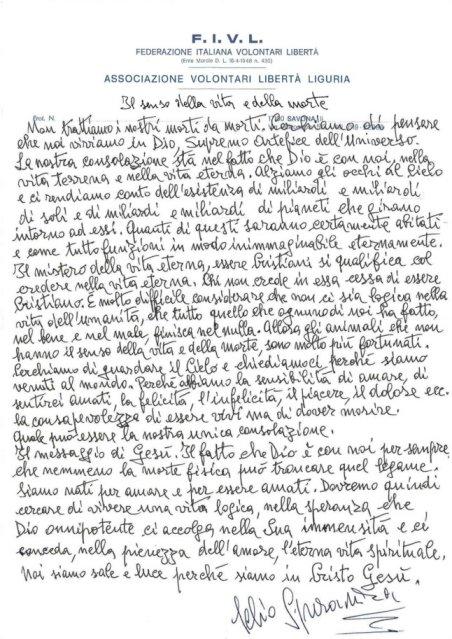 F. I. V. L.
FEDERAZIONE ITALIANA VOLONTARI LIBERTÀ
(Ente Morale D. L. 16-4-1948 n. 430)
ASSOCIAZIONE VOLONTARI LIBERTÀ LIGURIA
Il senso della vita e della morte
Prot. N. SAVONA
Non trattiamo i nostri morti da morti. Cerchiamo di pensare
che noi viviamo in Dio, Supremo Artefice dell'Universo.
La nostra consolazione sta nel fatto che Dio è con noi, nella
vita terrena e nella vita eterna. Alziamo gli occhi al Cielo
e ci rendiamo conto dell'esistenza di miliardi e miliardi
di soli e di miliardi e miliardi di pianeti che girano
intorno ad essi. Quanti di questi saranno certamente abitati
e come tutto funzioni in modo inimmaginabile eternamente.
Il mistero della vita eterna, essere Cristiani si qualifica col
credere nella vita eterna. Chi non crede in essa cessa di essere
Cristiano. È molto difficile considerare che non ci sia logica nella
vita dell'umanità, che tutto quello che ognuno di noi ha fatto,
nel bene e nel male, finisca nel nulla. Allora gli animali che non
hanno il senso della vita e della morte, sono molto più fortunati.
Cerchiamo di guardare il Cielo e chiediamoci perché siamo
venuti al mondo. Perché abbiamo la sensibilità di amare, di
sentirci amati, la felicità, l'infelicità, il piacere, il dolore ecc.
la consapevolezza di essere vivi ma di dover morire.
Quale può essere la nostra unica consolazione.
Il messaggio di Gesù. Il fatto che Dio è con noi per sempre,
che nemmeno la morte fisica può troncare quel legame.
Siamo nati per amare e per essere amati. Dovremo quindi
cercare di vivere una vita logica, nella speranza che
Dio onnipotente ci accolga nella Sua immensità e ci
conceda, nella pienezza dell'amore, l'eterna vita spirituale.
Noi siamo sale e luce perché siamo in Cristo Gesù.
Lelio Speranza